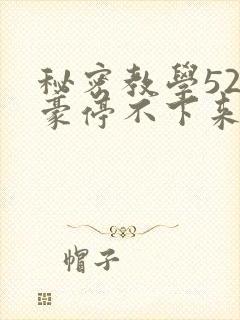 秘密教學52
豪停不下來
帽子